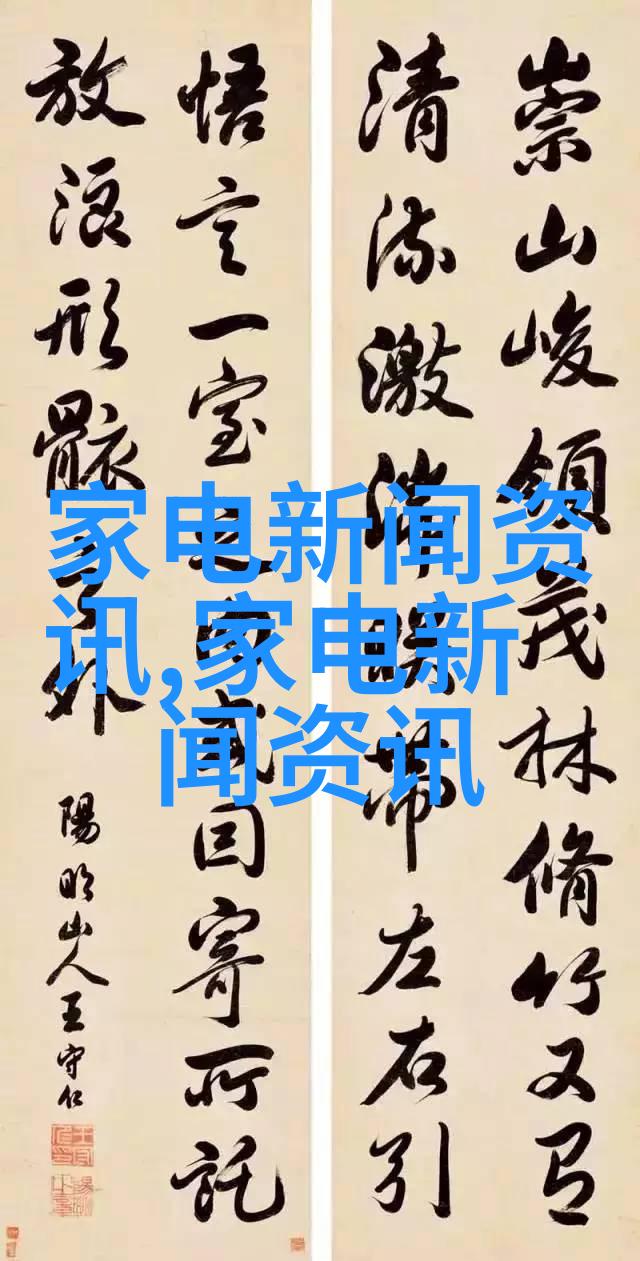 崇山峻領茂林脩竹又有
清流激湍暎帶左右引
悟言一室之内或因寄所託
放浪形骸之外
陽明山人王守仁
家电新闻资
讯,家电新
闻资讯